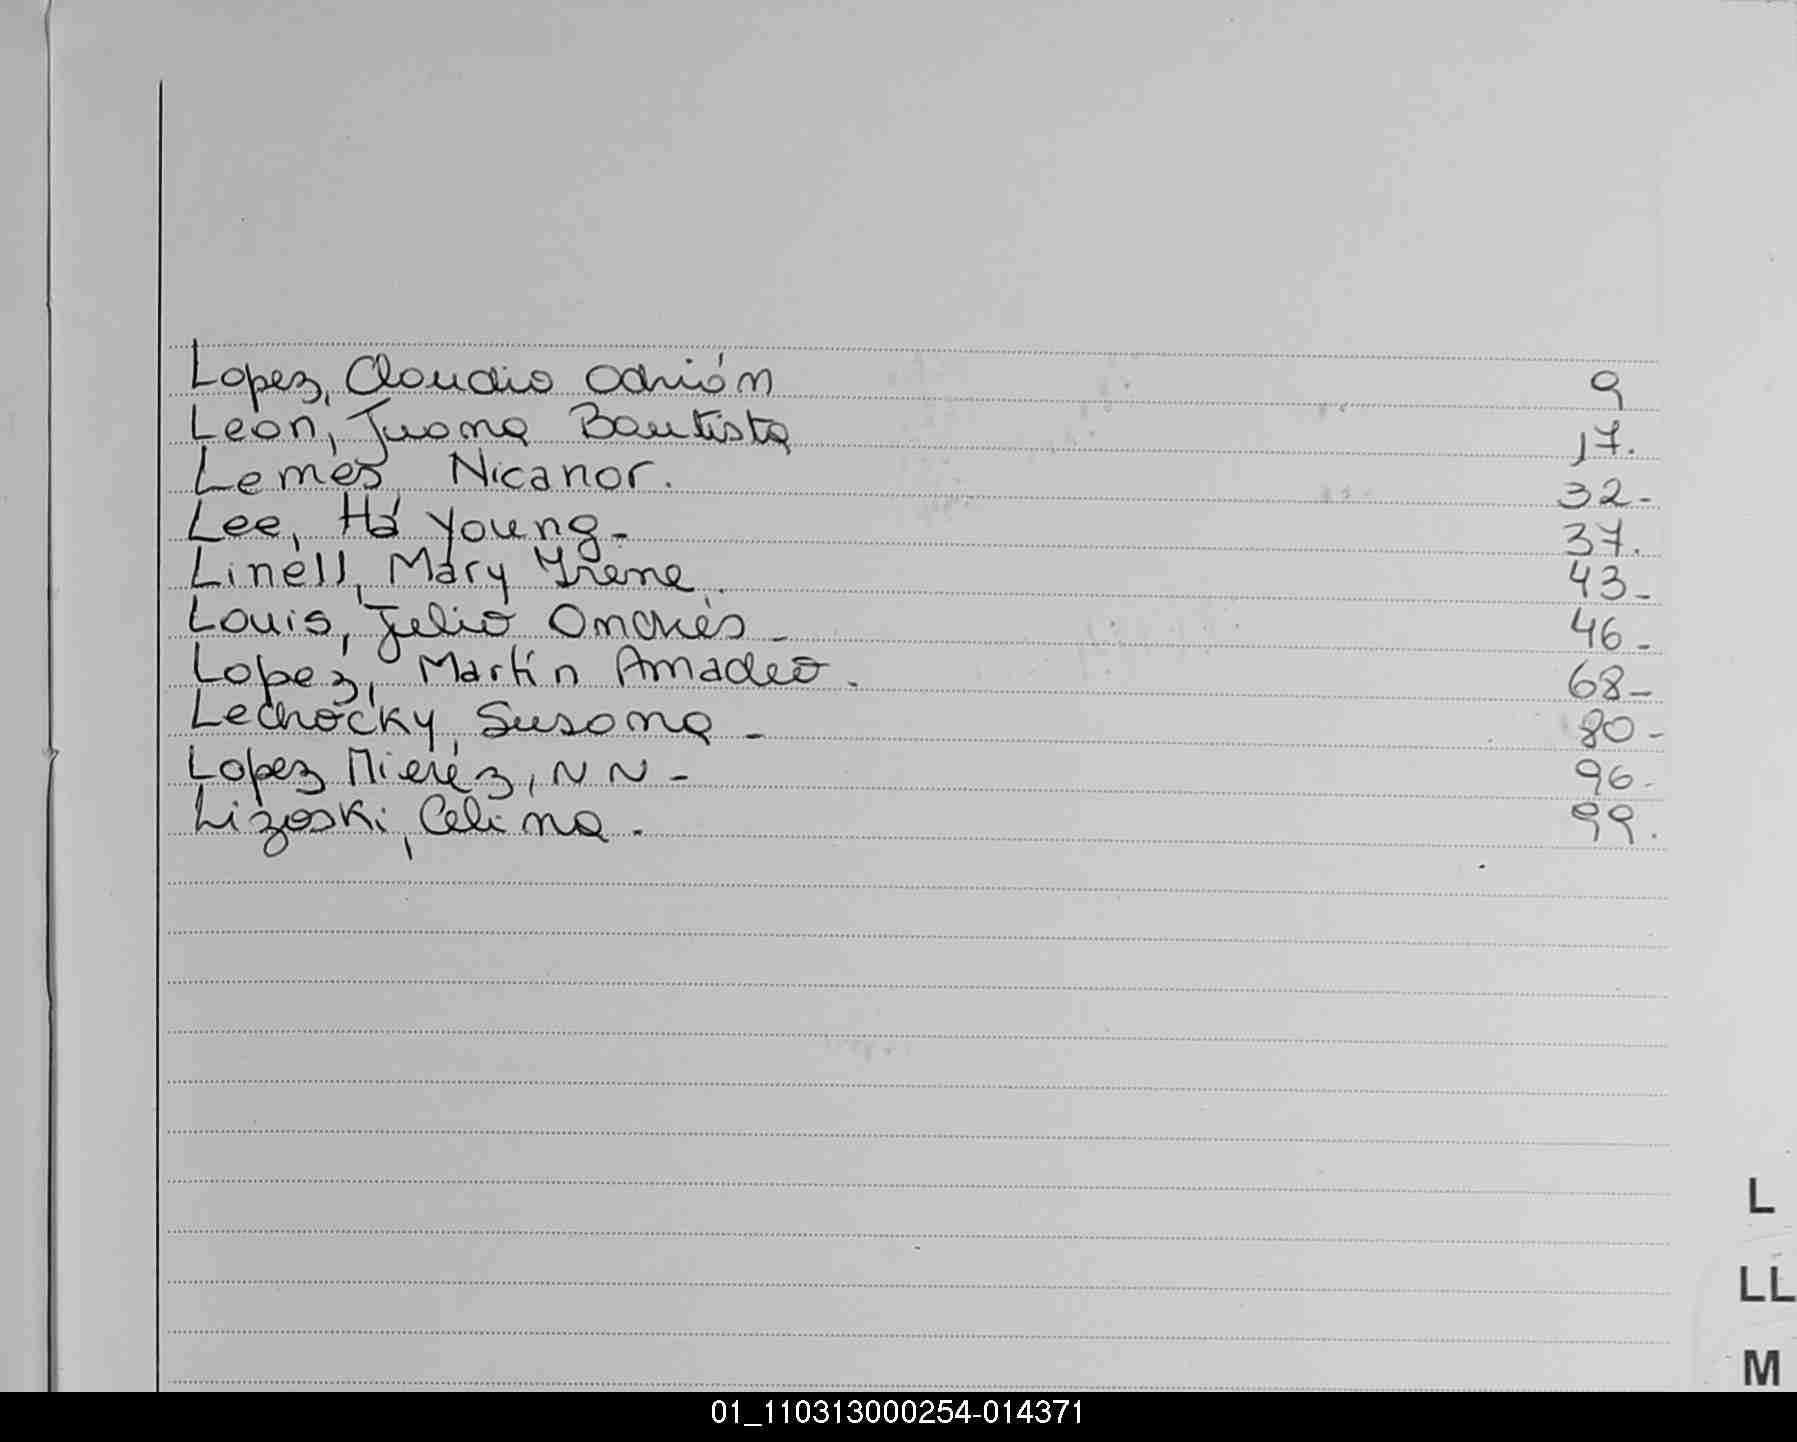 Lopez, Claudio Adrián 9
Leon, Juana Bautista 17.
Lemes Nicanor. 32-
Lee, Há Young- 37.
Linell, Mary Yrene. 43-
Louis, Julio Andrés - 46-
Lopez, Martín Amadeo. 68-
Susana - 80-
Lopez Mierez, N N - 96-
Lizoski, Celina. 99.
L
LL
M
01_110313000254-014371